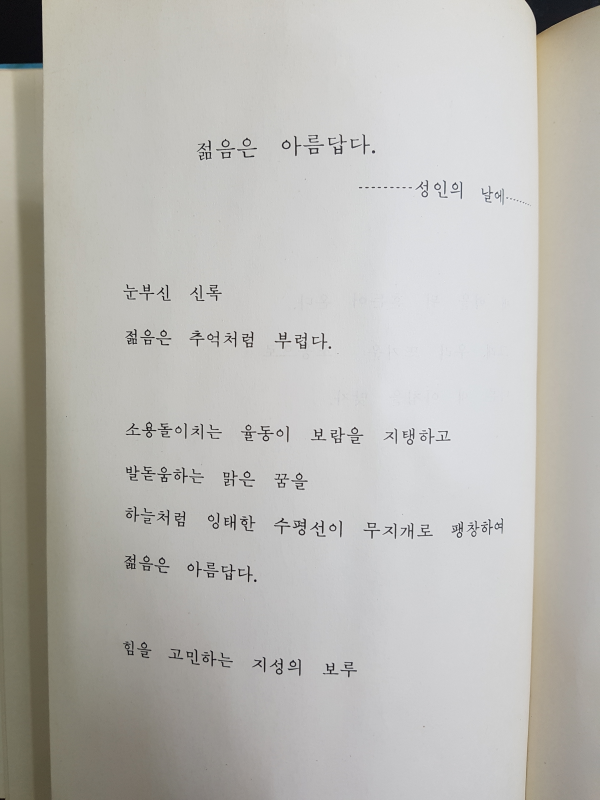 젊음은 아름답다.
---------성인의 날에......
눈부신 신록
젊음은 추억처럼 부럽다.
소용돌이치는 율동이 보람을 지탱하고
발돋움하는 맑은 꿈을
하늘처럼 잉태한 수평선이 무지개로 팽창하여
젊음은 아름답다.
힘을 고민하는 지성의 보루